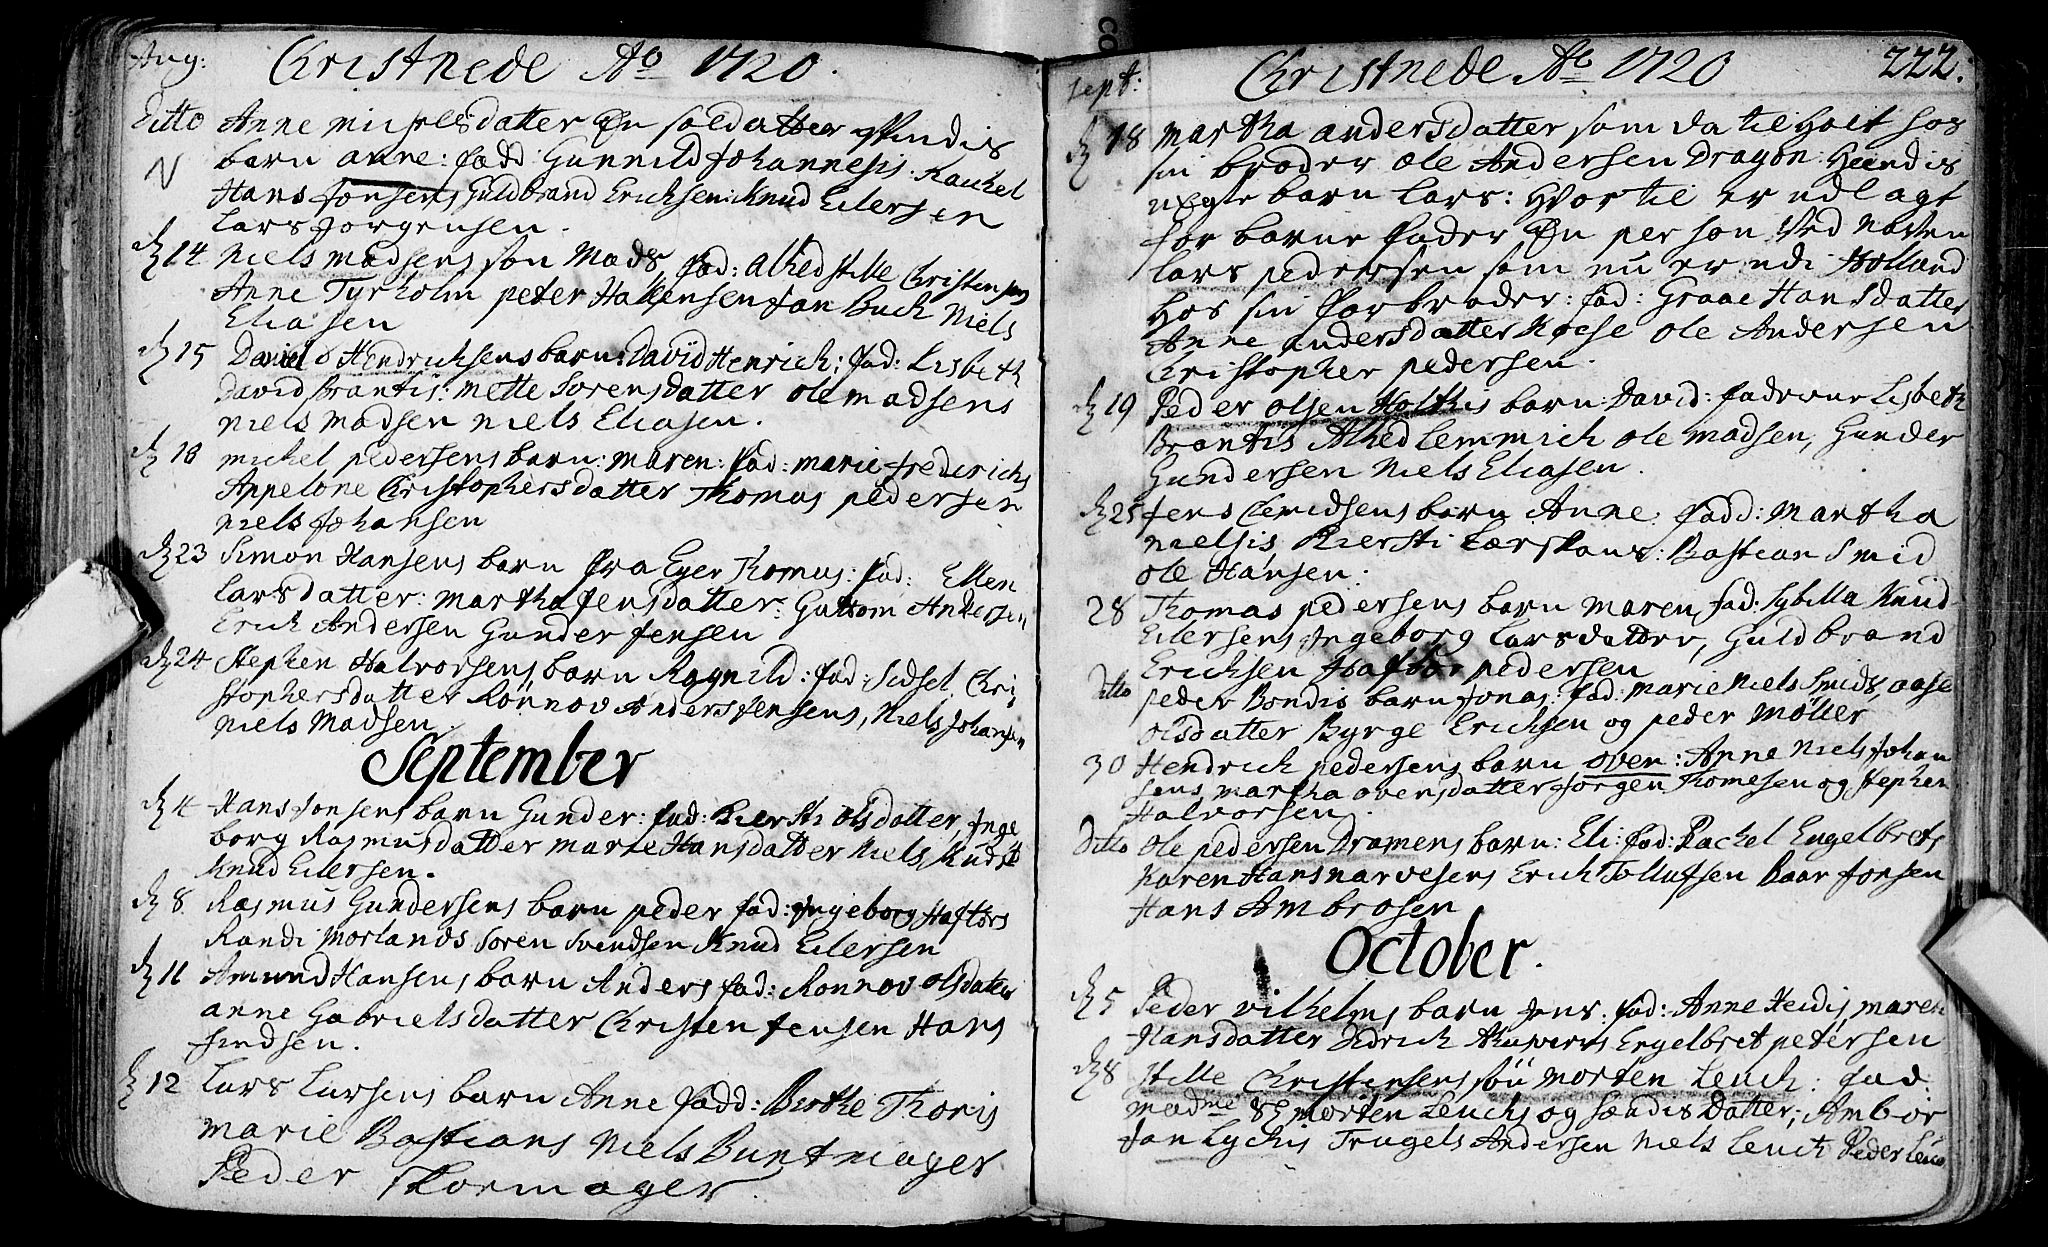 Aug: Christnede Ao 1720.
Ditto Anne michelsdatter En soldatter Qvindis
N barn anne: fadd: Gunnild Johannesis: Rachel
Hans Jonsens Guldbrand Ericksen: Knud Eilersen
Lars Jorgensen.
d 14 Niels madsens søn Mads, fad: Alhed Stille Christensens
Anne Tyrholm peter Hakensen Jan Buch Niels
Eliasen
d 15 Daniel Hendrichsens barn: David Henrich: fad: Lisbeth
David Brantis: Mette Sorensdatter ole madsens
niels madsen niels Eliasen.
d 18 michel pedersens barn: maren: fad: marie frederichs
Appelone Christophersdatter Thomas pedersen
niels Johansen
d 23 Simon Hansens barn fra Eger Thomas: fad: Ellen
Larsdatter: martha Jensdatter: Guttom Andersen
Erich Andersen Gunder Jensen
d 24 Stephen Halvorsens barn Ragnild: fad: Sidsel Chri
stophersdatter Rønnov Anders Jensens, Niels Johansen
Niels Madsen.
September
d 4 Hans Jonsens barn Gunder: fad: Kiersti olsdatter, Inge
borg Rasmusdatter marie Hansdatter Niels
Knud Eilersen.
d 8 Rasmus Gundersens barn peder fad: Ingeborg Haftørs
Randi Morlands Soren Svendsen Knud Eilersen
d 11 Amund Hansens barn Anders fad: Ronnov olsdatter
anne Gabrielsdatter Christen Jensen Hans
Findsen.
d 12 Lars Larsens barn Anne fadd: Berthe Thoris
marie Bastians Niels Buntmager
Peder Skormager.
Sept: Christnede Ao 1720 222.
d 18 Martha andersdatter som da til Holt hos
sin broder ole Andersen Dragon: Hendis
uEgte barn Lars: Hvortil er udlagt
for barne fader En person Ved Naven
Lars pedersen som nu er udi Holland
Hos sin farbroder: fad: Graae Hansdatter
Anne andersdatter Koese ole Andersen
Christopher pedersen.
d 19 Peder olsen Holthis barn: David: fadrene Lisbeth
Brantis Alhed Lemmich ole madsen, Gunder
Gundersen Niels Eliasen.
d 25 Jens barn Anne. fadd: Martha
nielsis Kiersti Bastian Smid
ole Hansen:
28 Thomas pedersens barn maren, fad: Sybilla Knud
Eilersens Ingeborg Larsdatter, Guldbrand
Ericksen Haftor pedersen
ditto peder Bondis barn Jonas: fad: marie Niels Smids, aase
olsdatter Byrge Erichsen og peder Møller
30 Hendrich pedersens barn oven: Anne Niels Johan
sens martha ovensdatter Jorgen Thomesen og Stephen
Halvorsen.
Ditto ole pedersen Dramens barn: Eli: fad: Rachel Engelbrets
Karen Hans narvesens Erich Tollufsen Baar Jonsen
Hans Ambrosen
October.
d 5 Peder Vilhelms barn Jens: fad: Anne Heidis, maren
Hansdatter Didrich Engelbret petersen
d 8 Stille Christensens søn morten Leuch: fad.
madme Sl morten Leuchs og Datter; Ambør
Jan Lychis Trugels Andersen Niels Leuch Peder Leuch